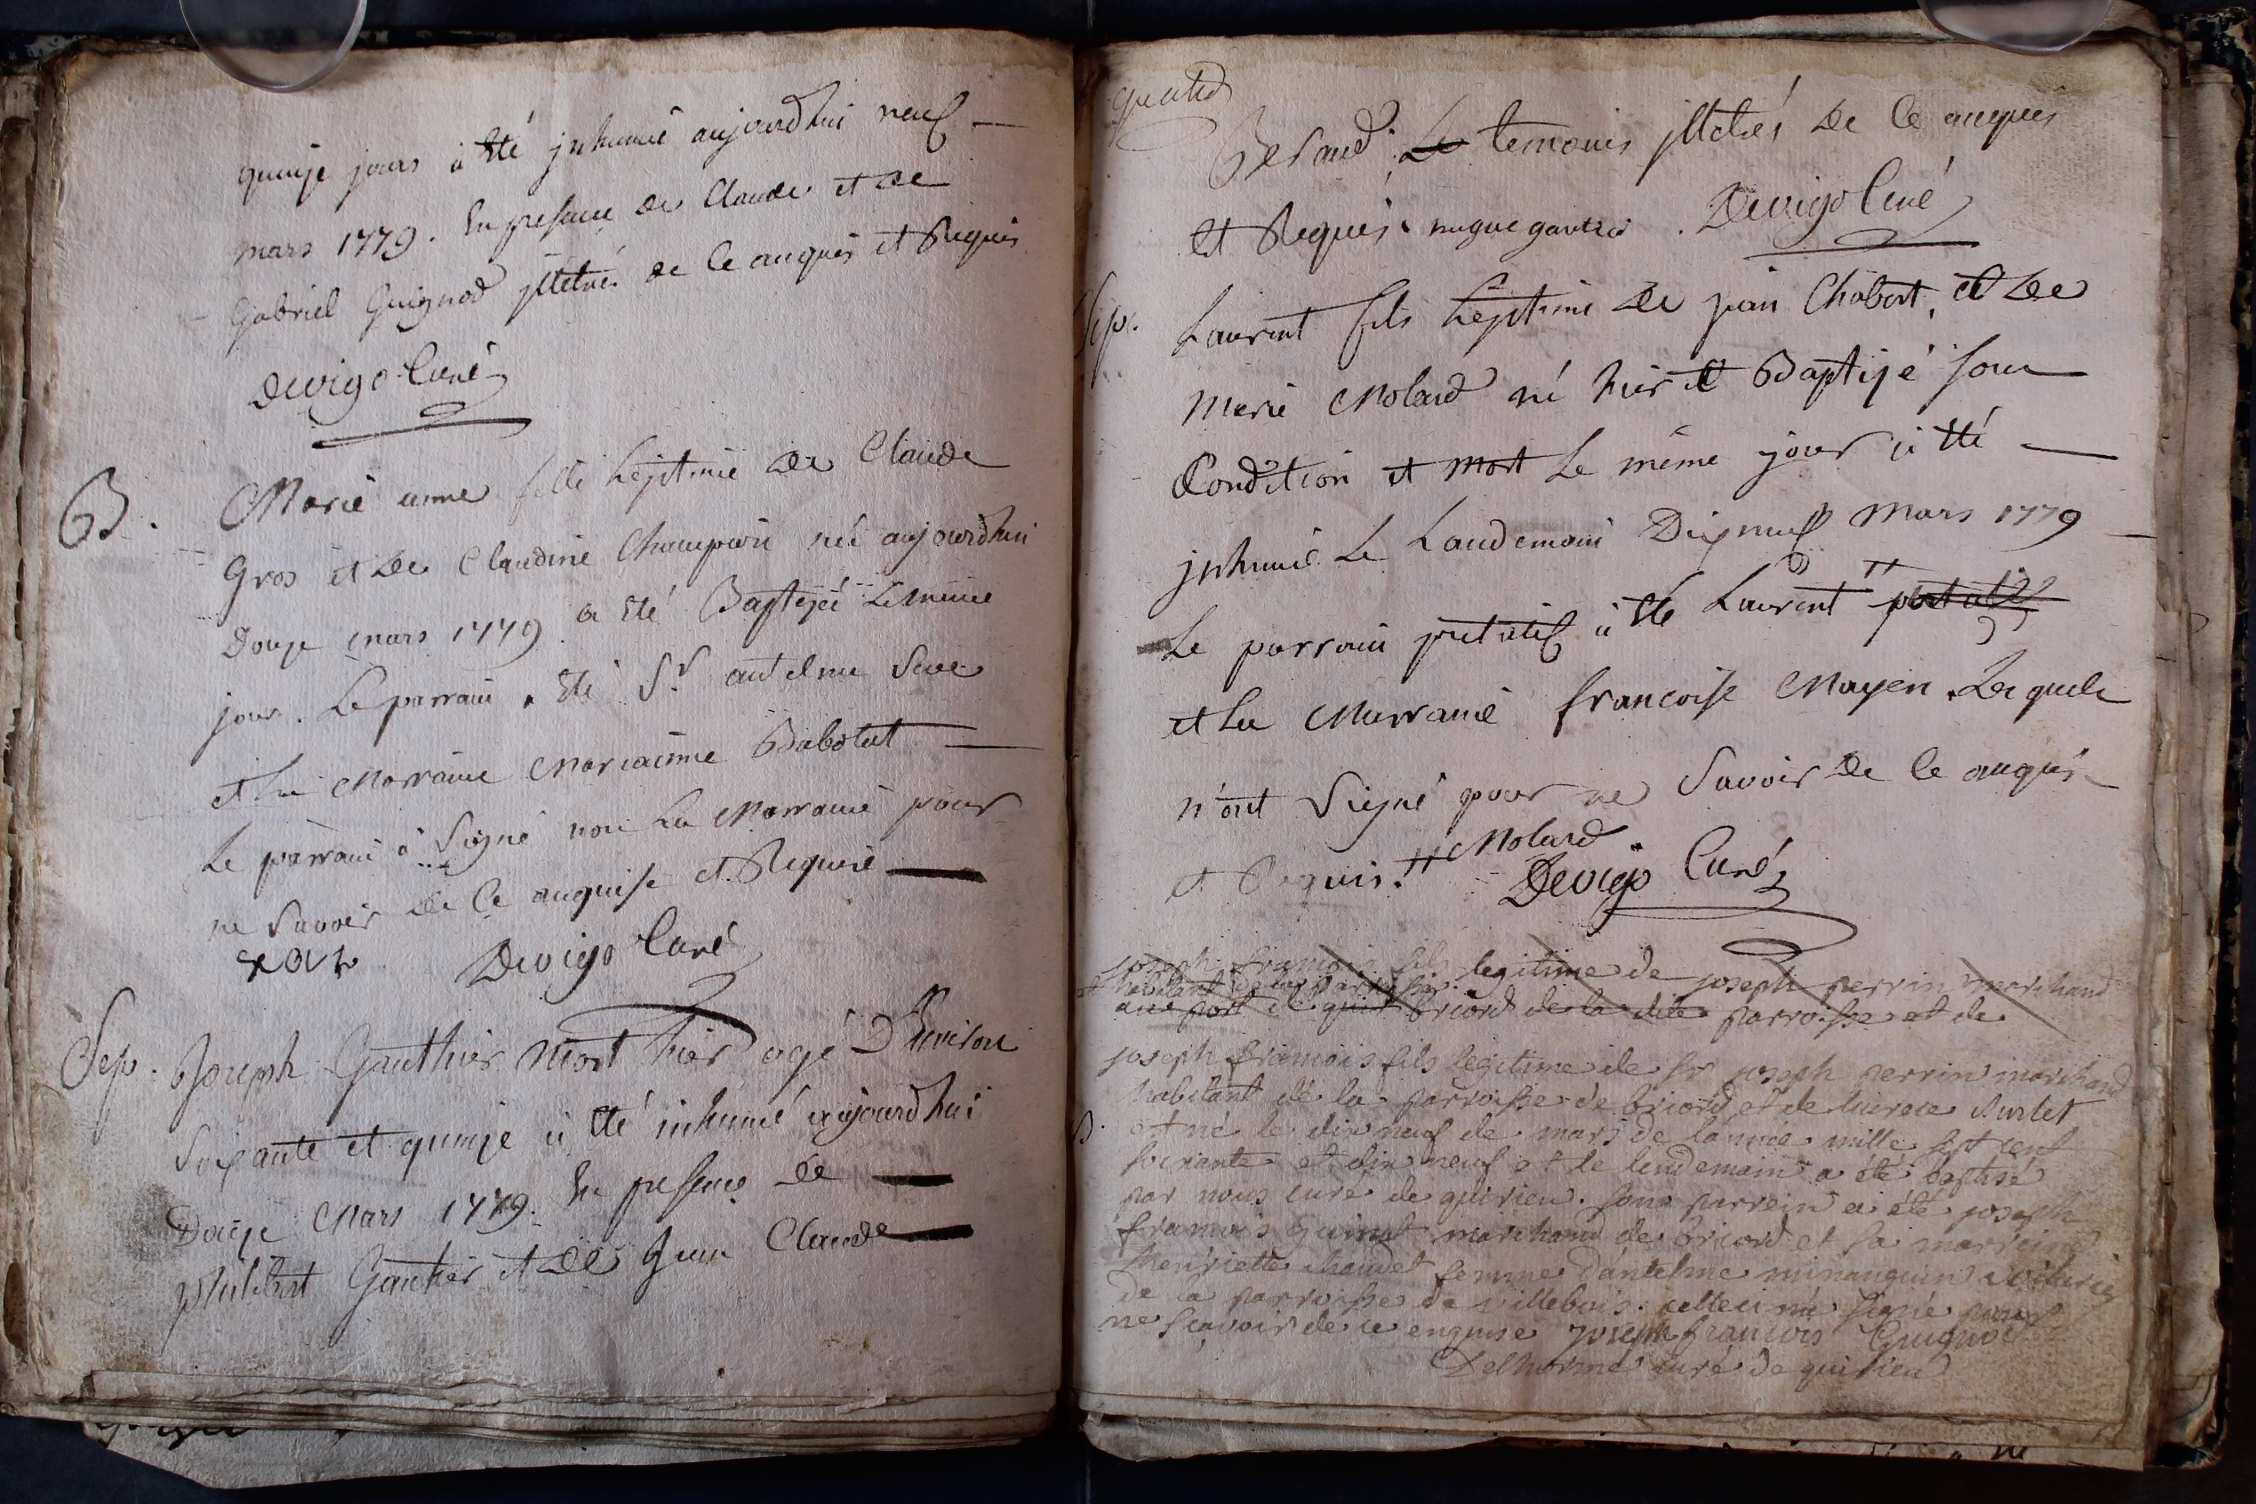 quinze jours a été jnhumé aujourdhui neuf
mars 1779. En presence de Claude et de
Gabriel Guignod jlletrés de ce anquis et Requis
Devigo Curé
B. Marie anne fille Legitime de Claude
Gros et de Claudine Champion née aujourdhui
Douze mars 1779 a été Baptizée Le même
jour. Le parrain a été Sr. antelme Seve
et La Marraine Marianne Babolat
Le parrain à Signé non La Marraine pour
ne Savoir de Ce anquise et Requise
Devigo Curé
Sep. Joseph Gauthier mort hier agé D'Environ
Soixante et quinze a été inhumé aujourdhui
Douze Mars 1779. En presence de
philibert Gautier et de Jean Claude
Beraud Le temouis jlletrés de Ce anquis
et Requis. Devigo Curé
Sep. Laurent fils Legitime de jean Chabert, et de
Marie Molard né hier et Baptizé sous
Condition et mort Le même jour a été
jnhumé Le Landemain Dixneuf Mars 1779
Le parrain putatif à été Laurent
et La Marraine francoise Mayen. Lesquels
n'ont Signé pour ne Savoir de Ce anquis
et Requis. Molard
Devigo Curé
joseph francois fils legitime de joseph perrin marchand
habitant de la parroisse
au port de briord de la dite parroisse et de
B. joseph francois fils legitime de sr joseph perrin marchand
habitant de la parroisse de briord et de
est né le dix neuf de mars de l'année mille sept cent
soixante et dix neuf et le lendemain a été baptisé
par nous curé de quirieu. sont parrein a été joseph
francois guinet marchand de briord et sa marreine
henriette chaudet femme d'antelme
de la parroisse de villebois. celleci n'a signé pour
ne sçavoir de ce enquise joseph francois
Delhorme curé de quirieu